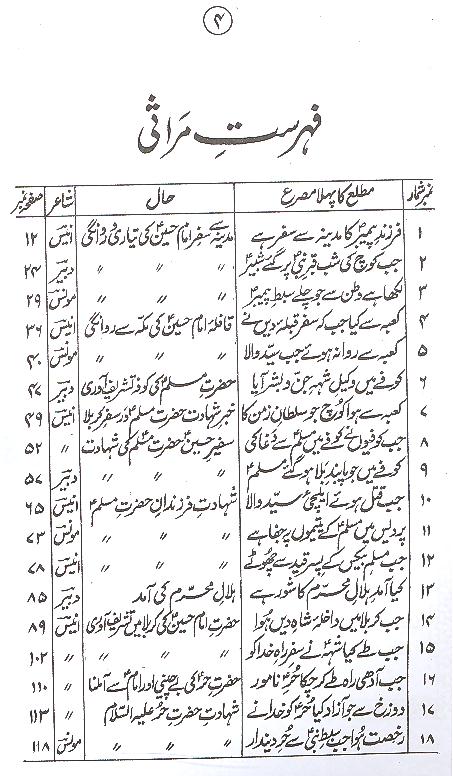 ۴
فہرستِ مراثی
نمبر شمار مطلع کا پہلا مصرع حال شاعر صفحہ نمبر
۱ فرزندِ پیمبرؐ کا مدینہ سے سفر ہے مدینہ سے سفر امام حسینؑ کی تیاری و روانگی انیسؔ ۱۲
۲ جب کوچ کی شب قبرِ نبیؐ پر گئے شبیرؑ 〃 〃 دبیرؔ ۲۴
۳ لکھا ہے وطن سے جو چلے سبطِ پیمبرؐ 〃 〃 مونسؔ ۲۹
۴ کعبہ سے کیا جب کہ سفر قبلۂ دیں نے قافلۂ امام حسینؑ کی مکّہ سے روانگی انیسؔ ۳۶
۵ کعبہ سے روانہ ہوئے جب سیّدِ والا 〃 〃 〃 مونسؔ ۴۰
۶ کوفے میں وکیلِ شہِ جن و بشر آیا حضرت مسلمؑ کی کوفہ تشریف آوری دبیرؔ ۴۷
۷ کعبہ سے ہوا کوچ جو سلطانِ زمن کا خبرِ شہادت حضرت مسلمؑ اور سفرِ کربلا انیسؔ ۴۹
۸ جب کوفیوں نے کوفے میں مسلمؑ سے دغا کی سفیرِ حسینؑ حضرت مسلمؑ کی شہادت 〃 ۵۲
۹ کوفے میں جو پابندِ بلا ہو گئے مسلمؑ 〃 〃 〃 دبیرؔ ۵۷
۱۰ جب قتل ہوئے ایلچیِ سیّدِ والا شہادتِ فرزندانِ حضرت مسلمؑ انیسؔ ۶۵
۱۱ پردیس میں مسلمؑ کے یتیموں پر جفا ہے 〃 〃 〃 مونسؔ ۷۳
۱۲ جب مسلمِ بیکس کے پسر قید سے چھوٹے 〃 〃 〃 انیسؔ ۷۸
۱۳ کیا آمدِ ہلالِ محرّم کا شور ہے ہلالِ محرّم کی آمد دبیرؔ ۸۵
۱۴ جب کربلا میں داخلۂ شاہِ دیں ہوا حضرت امام حسینؑ کی کربلا میں تشریف آوری انیسؔ ۸۹
۱۵ جب طے کیا شہؑ نے سفرِ راہِ خدا کو 〃 〃 〃 ۱۰۲
۱۶ جب آدھی راہ طے کر چکا حُرِّ نامور حضرت حُرؑ کی بے چینی اور امامؑ سے آملنا 〃 ۱۱۰
۱۷ دوزخ سے جو آزاد کیا حُرؑ کو خدا نے شہادت حضرت حُر علیہ السّلام 〃 ۱۱۳
۱۸ رخصت ہوا جب سبطِ نبیؐ سے حُرِ دیندار 〃 〃 〃 مونسؔ ۱۱۸